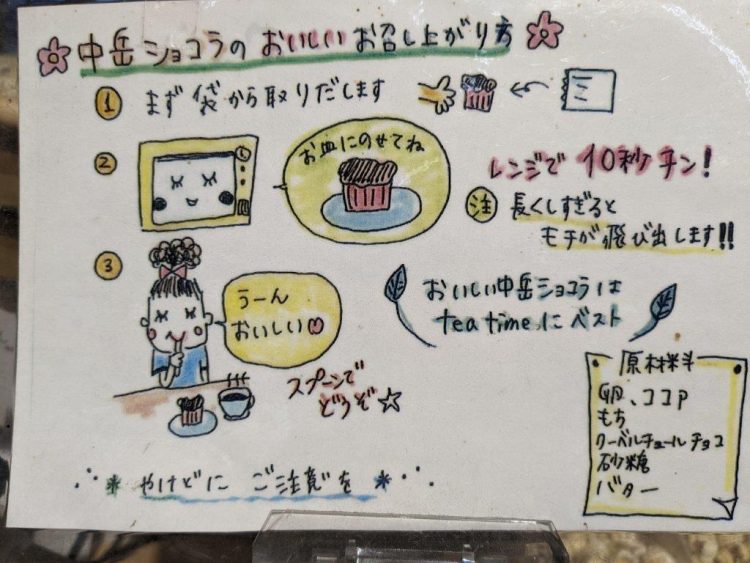 中岳ショコラのおいしいお召し上がり方
① まず袋から取りだします
②
お皿にのせてね
レンジで10秒チン！
注 長くしすぎると
モチが飛び出します!!
③
うーん
おいしい♡
おいしい中岳ショコラは
tea timeにベスト
スプーンで
どうぞ☆
原材料
卵、ココア
もち
クーベルチュールチョコ
砂糖
バター
＊やけどにご注意を＊